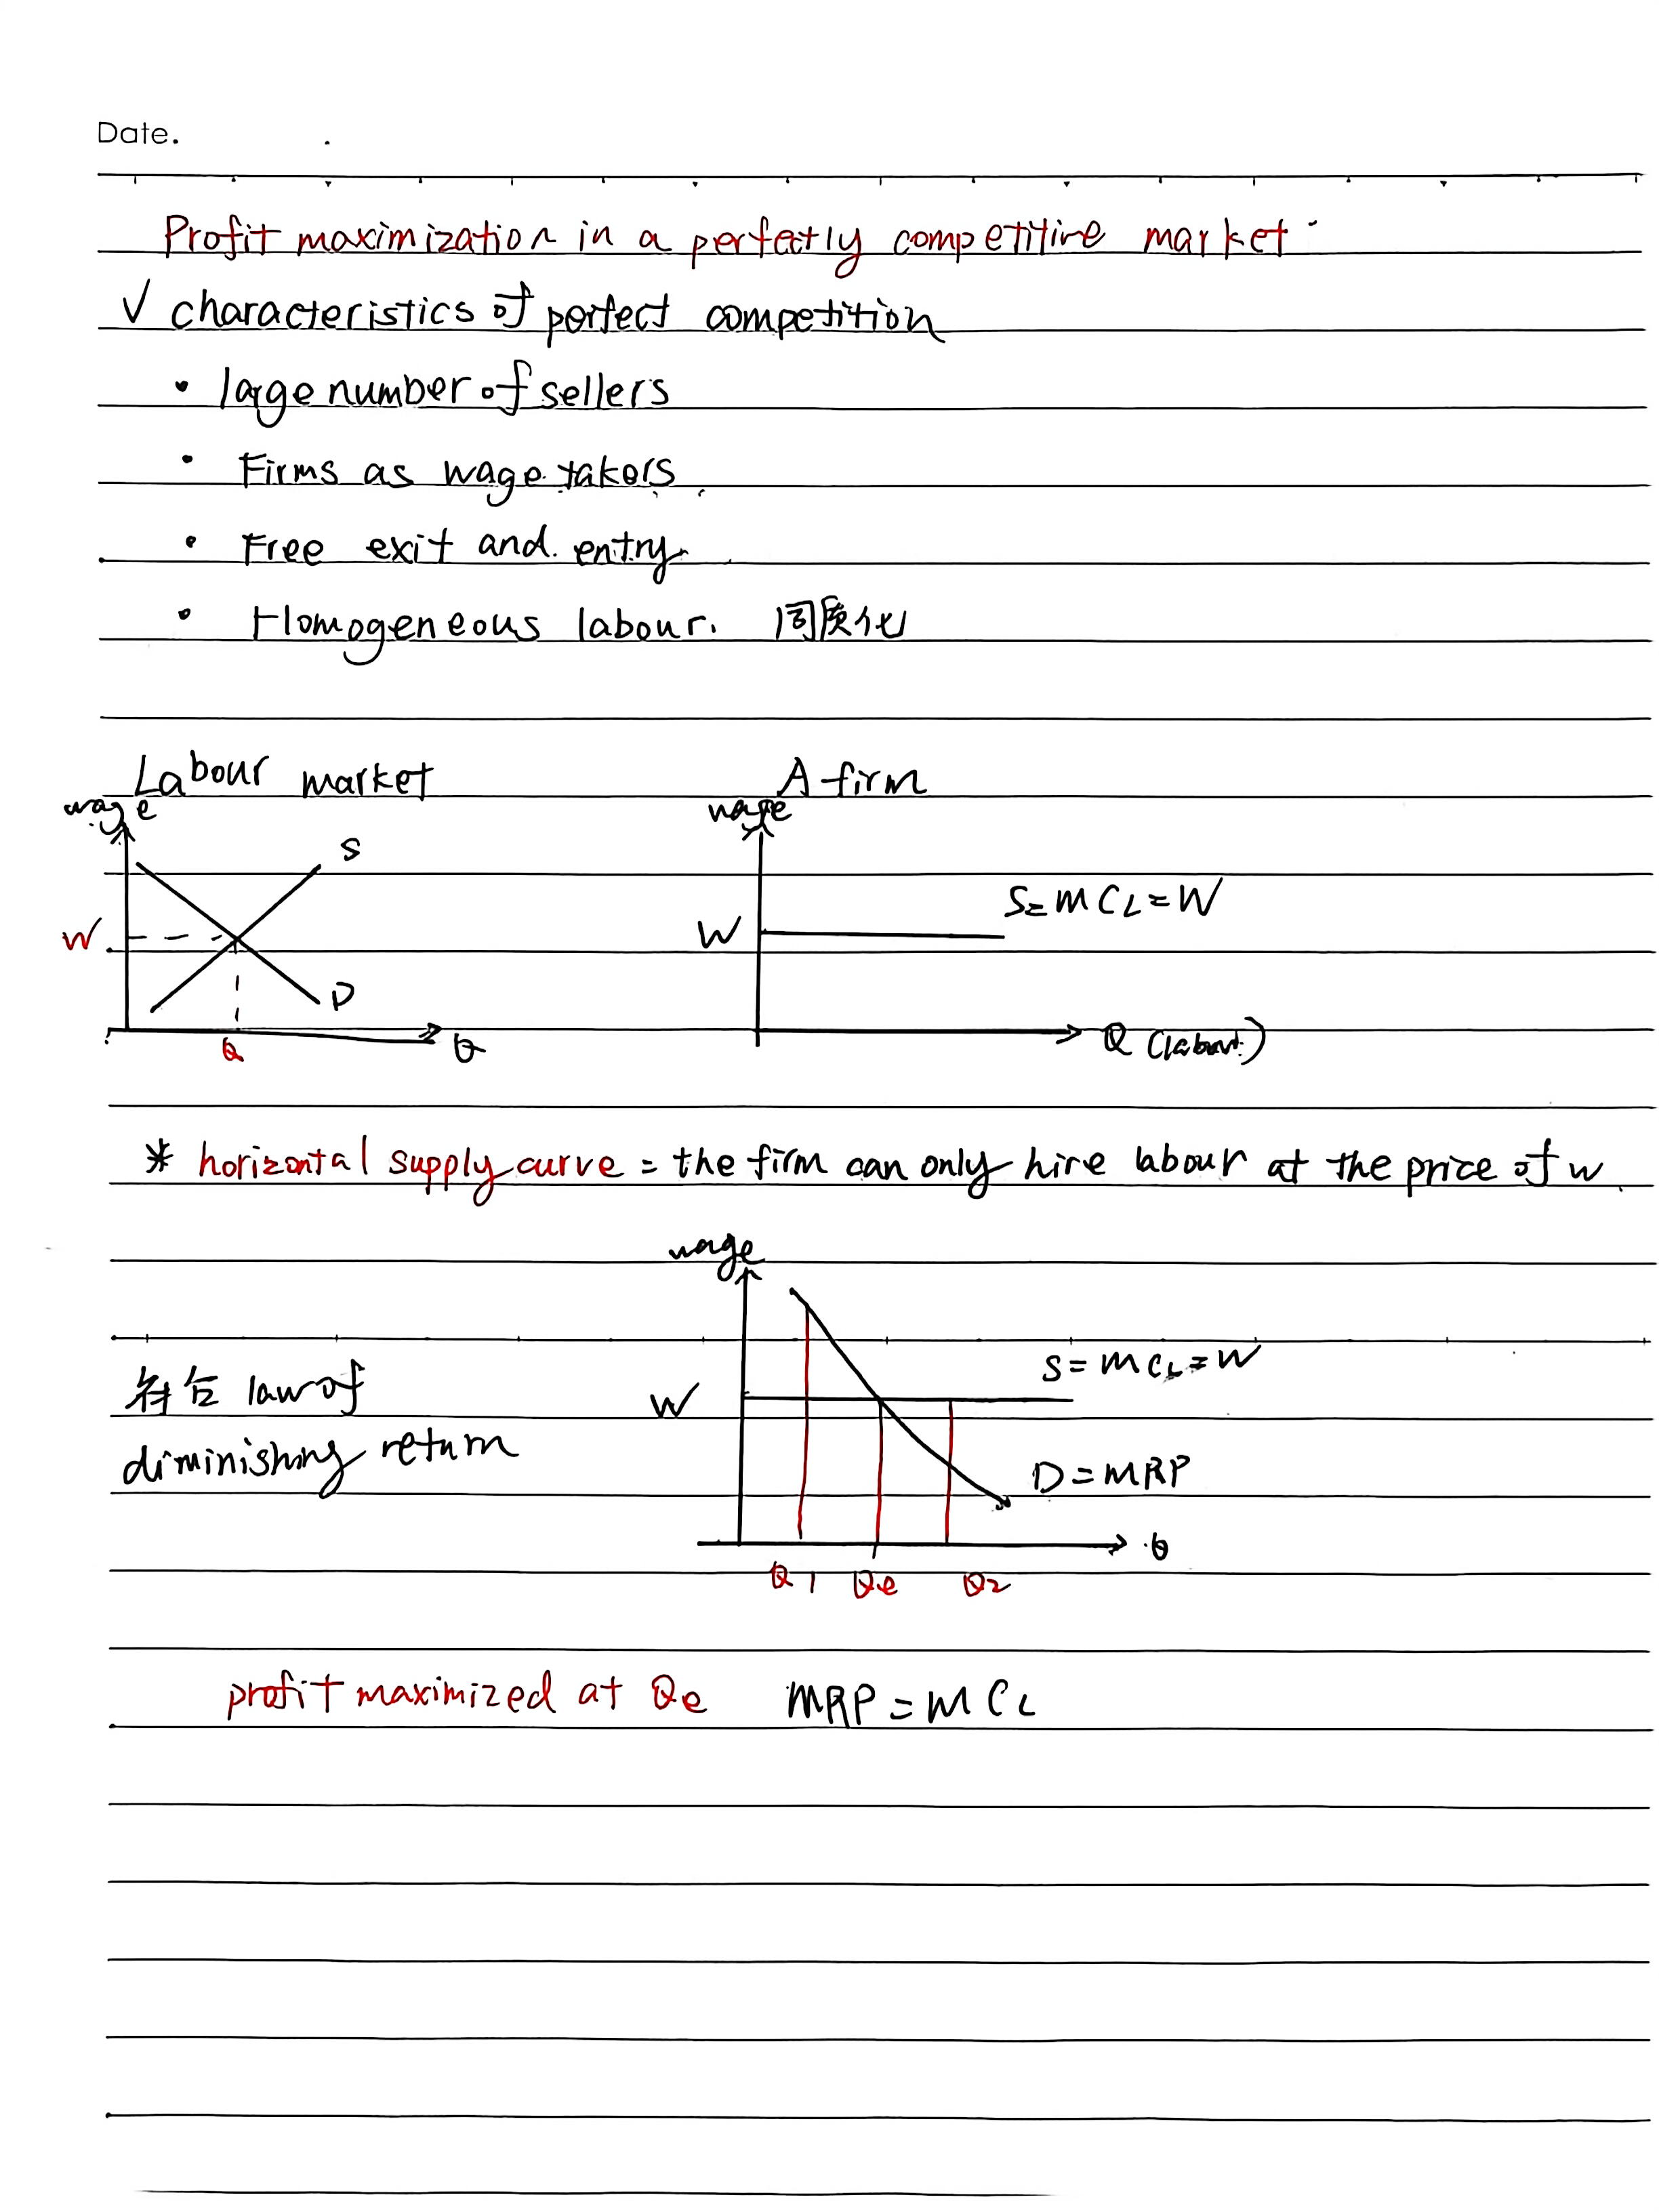 Date.
Profit maximization in a perfectly competitive market
√ characteristics of perfect competition
• large number of sellers
• Firms as wage takers
• Free exit and entry
• Homogeneous labour. 同质化
Labour market
A firm
wage
S
W
D
Q
Q
wage
S=MCL=W
W
Q (labour)
* horizontal supply curve = the firm can only hire labour at the price of w.
wage
符合 law of
diminishing return
S=MCL=W
W
D=MRP
Q
Q1 Qe Q2
profit maximized at Qe MRP=MCL